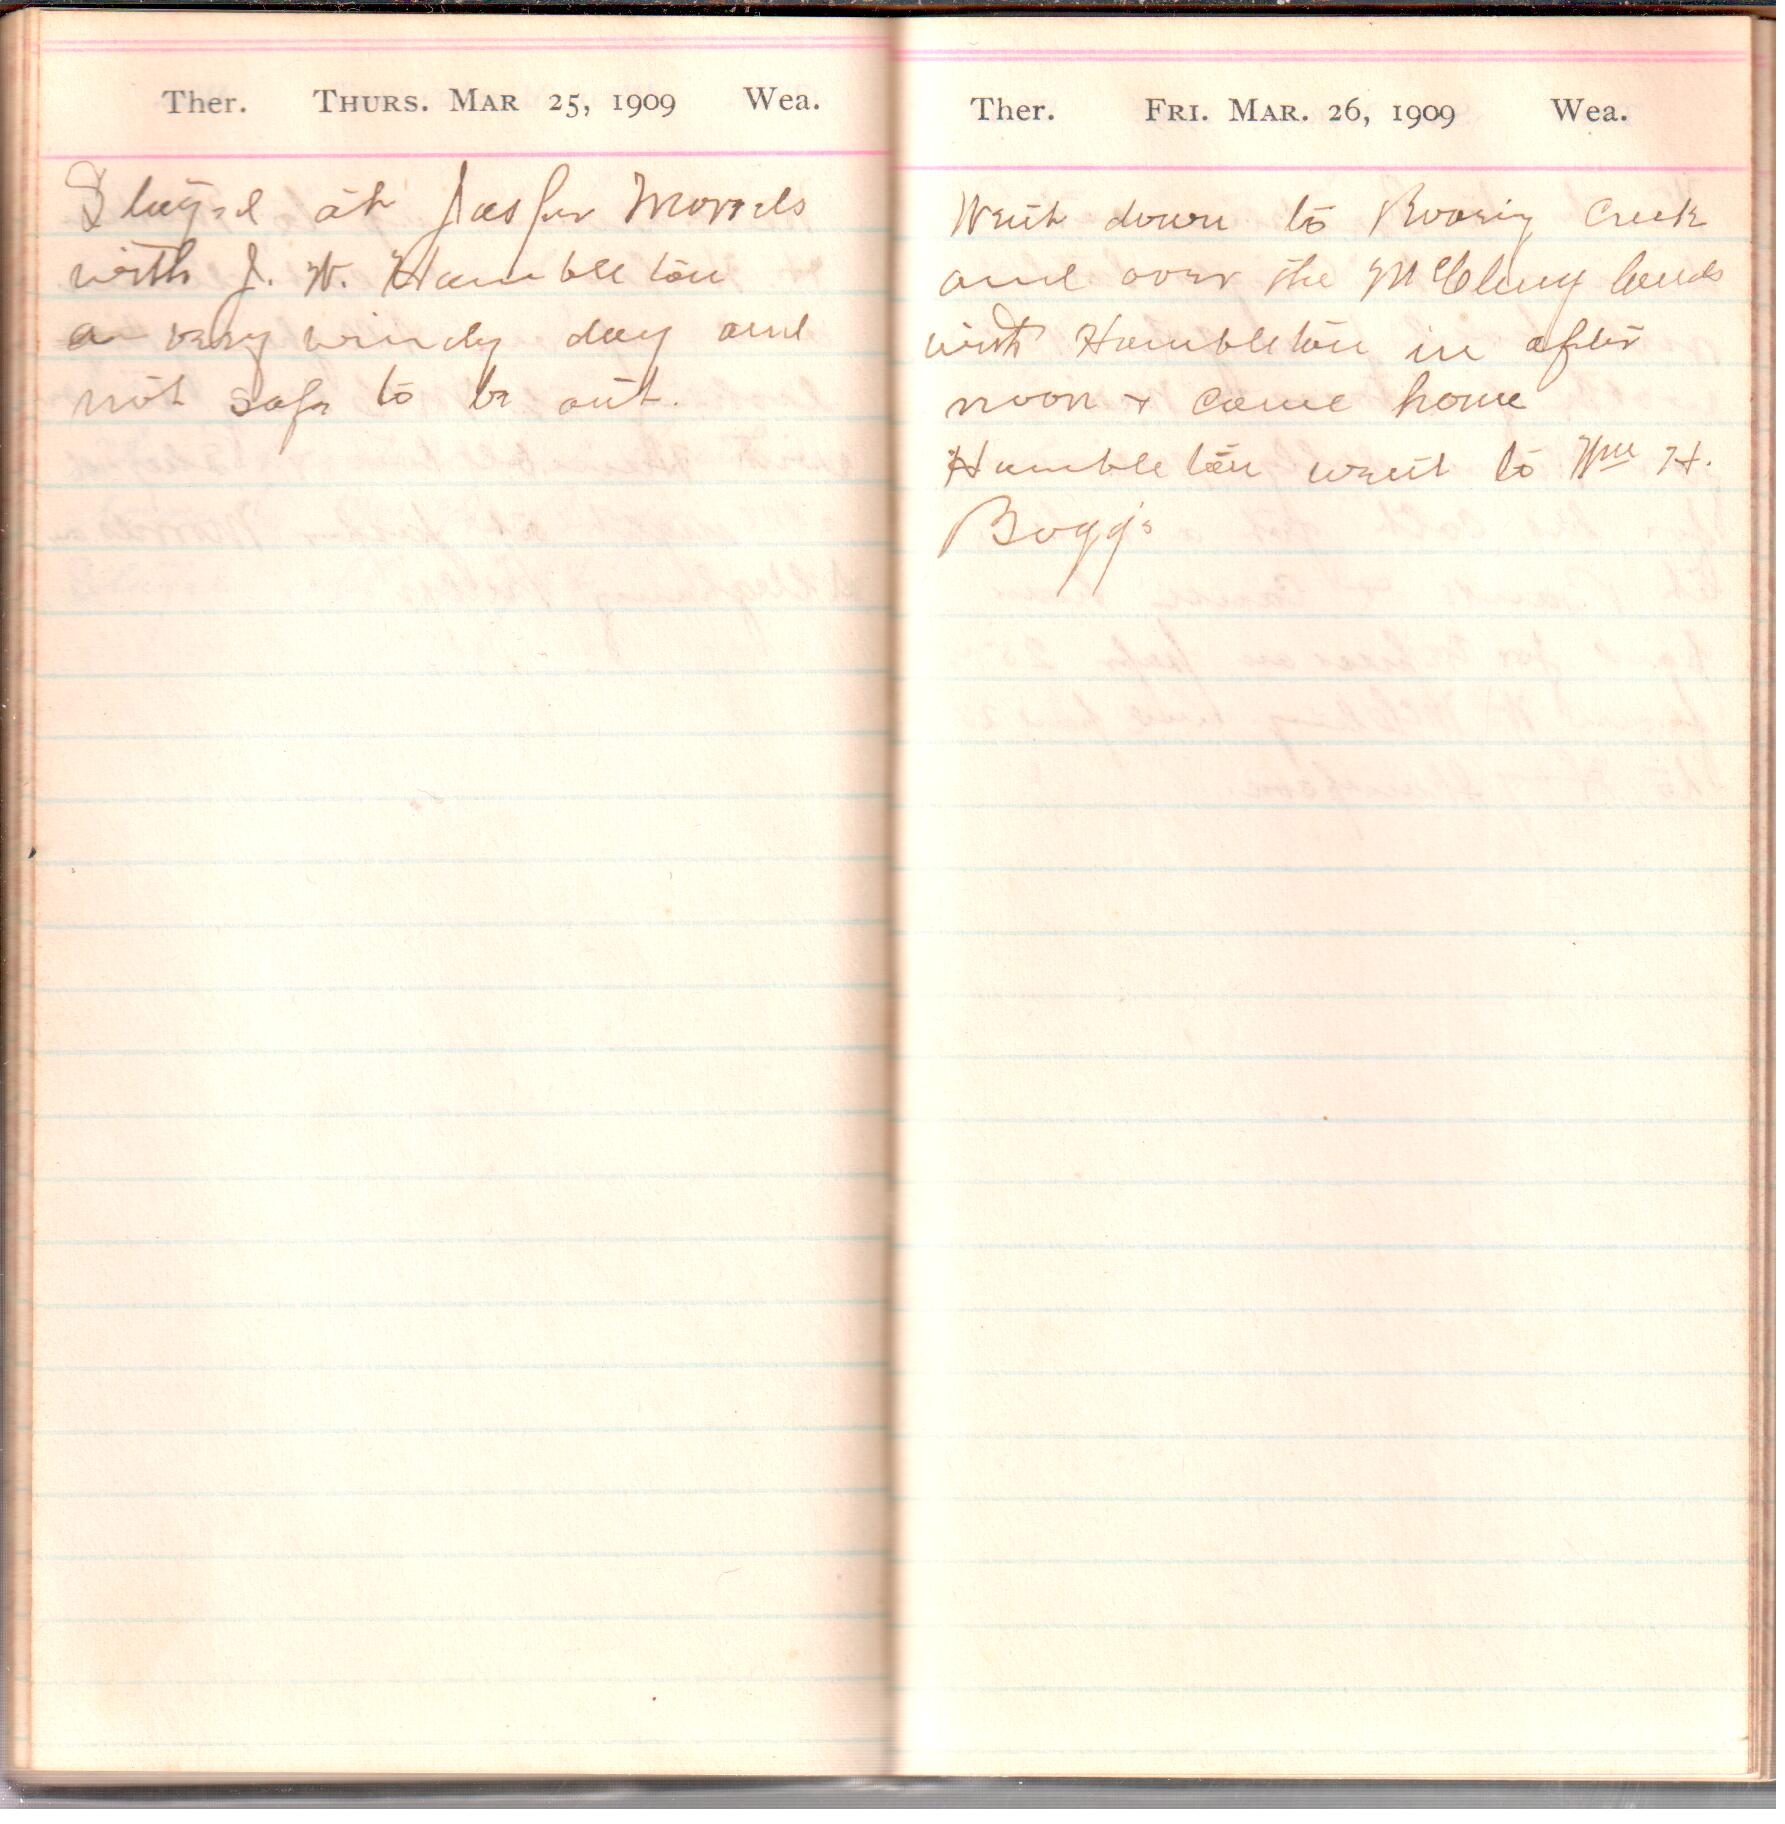 Ther. THURS. MAR 25, 1909 Wea.
Stayed at Jasper Morrels
with J. W. Hambleton
a very windy day and
not safe to be out.
Ther. FRI. MAR. 26, 1909 Wea.
Went down to Roarig Creek
and over the McClung lands
with Hambleton in after
noon + came home
Hambleton went to Wm H.
Boggs